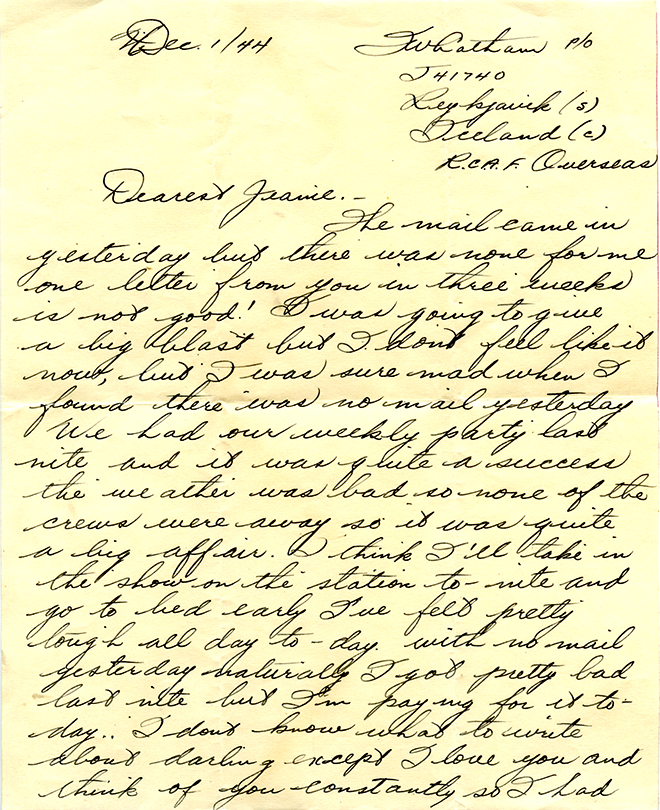 Dec. 1/44
P/O
J41740
Reykjavik (s)
Iceland (c)
R.C.A.F. Overseas
Dearest Jeanie. -
The mail came in
yesterday but there was none for me
one letter from you in three weeks
is not good! I was going to give
a big blast but I dont feel like it
now, but I was sure mad when I
found there was no mail yesterday
We had our weekly party last
nite and it was quite a success
the weather was bad so none of the
crews were away so it was quite
a big affair. I think I'll take in
the show on the station to-nite and
go to bed early I've felt pretty
tough all day to-day. with no mail
yesterday naturally I got pretty bad
last nite but I'm paying for it to-
day.. I dont know what to write
about darling except I love you and
think of you constantly so I had